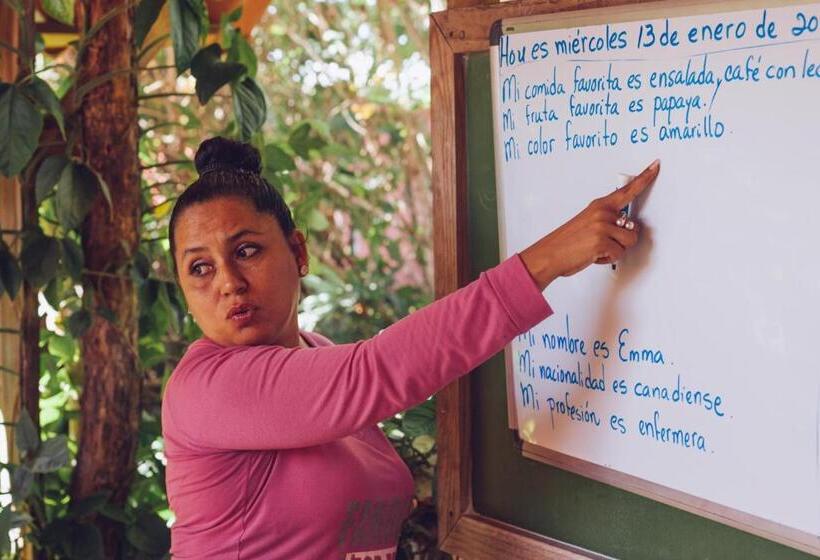 Hoy es miércoles 13 de enero de 20
Mi comida favorita es ensalada, café con lec
Mi fruta favorita es papaya.
Mi color favorito es amarillo.
Mi nombre es Emma.
Mi nacionalidad es canadiense.
Mi profesión es enfermera.